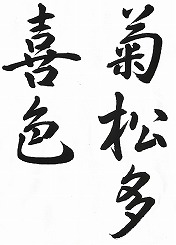 菊松多
喜色